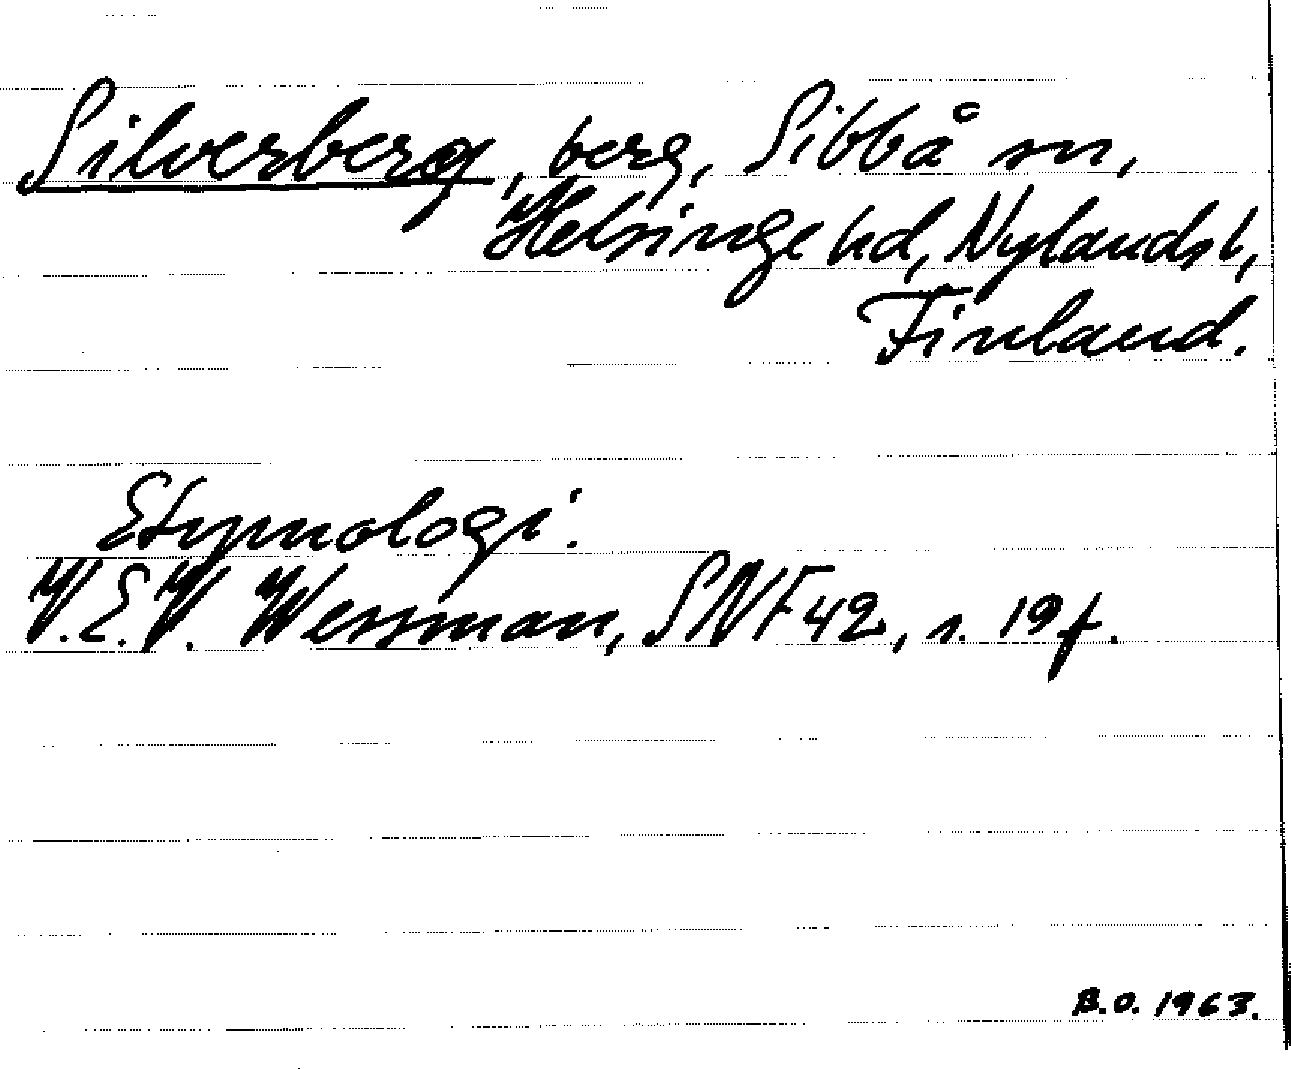 Silverberg, berg, Sibbå sn,
Helsinge hd, Nylands l,
Finland.
Etymologi:
V.E.V. Wessman, SNF 42, s. 19 f.
B.O. 1963.